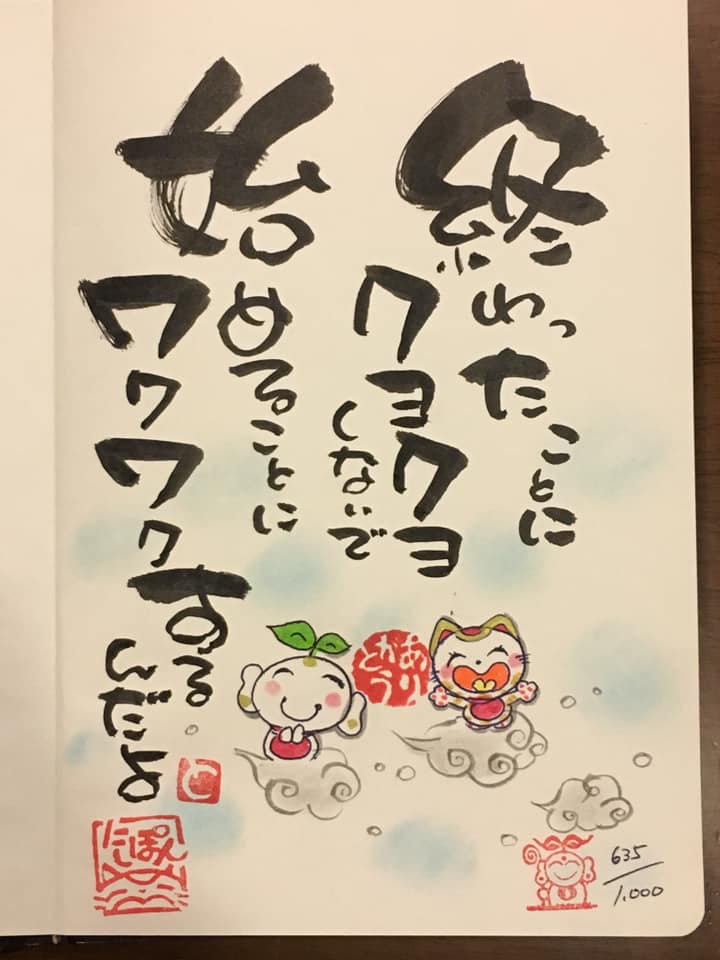 終わったことに
クヨクヨ
しないで
始めることに
ワクワク
するんだよ
と
ありがとう
にしぽん
635/1,000